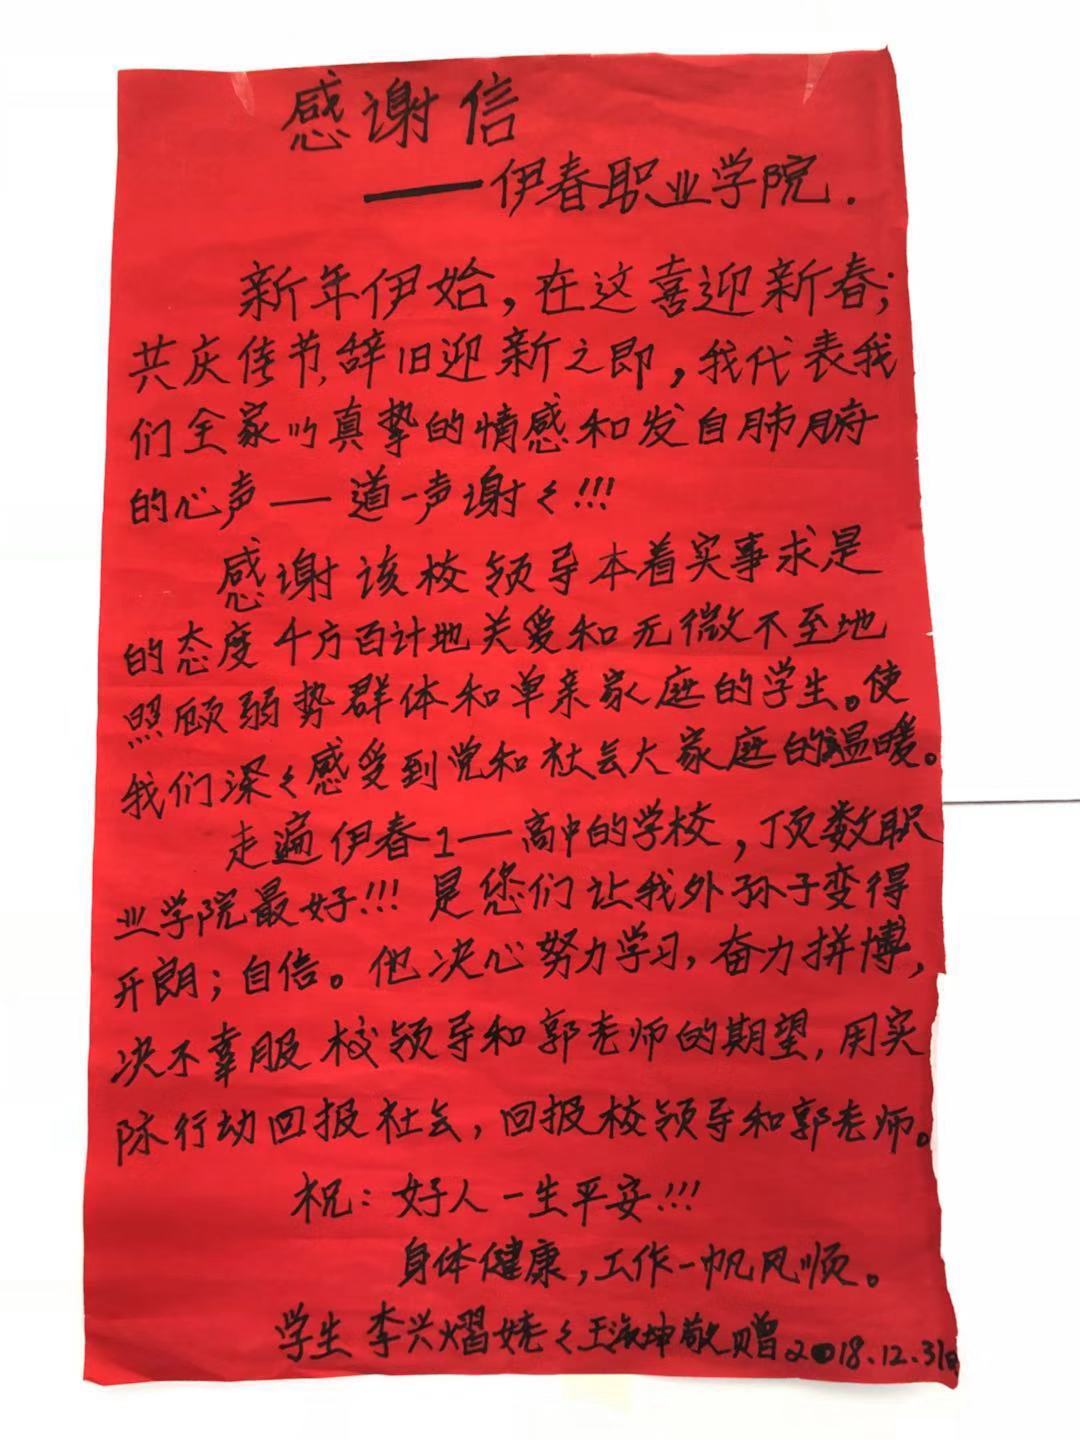 感谢信
——伊春职业学院.
新年伊始,在这喜迎新春;
共庆佳节,辞旧迎新之即,我代表我
们全家以真挚的情感和发自肺腑
的心声——道一声谢々!!!
感谢该校领导本着实事求是
的态度千方百计地关爱和无微不至地
照顾弱势群体和单亲家庭的学生。使
我们深々感受到党和社会大家庭的温暖。
走遍伊春1—高中的学校,顶数职
业学院最好!!!是您们让我外孙子变得
开朗;自信。他决心努力学习,奋力拼博,
决不辜服校领导和郭老师的期望,用实
际行动回报社会,回报校领导和郭老师。
祝:好人一生平安!!!
身体健康,工作一帆风顺。
学生李兴熠姥々王淑坤敬赠2018.12.31日